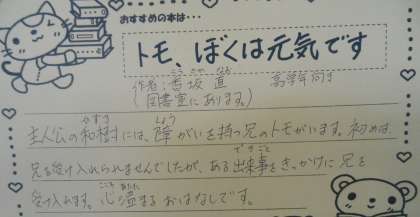 おすすめの本は・・・
トモ、ぼくは元気です
作者:香坂 直 高学年向き
こうさか なお
(図書室にあります。)
かずき しょう
主人公の和樹には、障がいを持つ兄のトモがいます。初めは
できごと
兄を受け入れられませんでしたが、ある出来事をきっかけに兄を
こころ あたた
受け入れます。心温まるおはなしです。